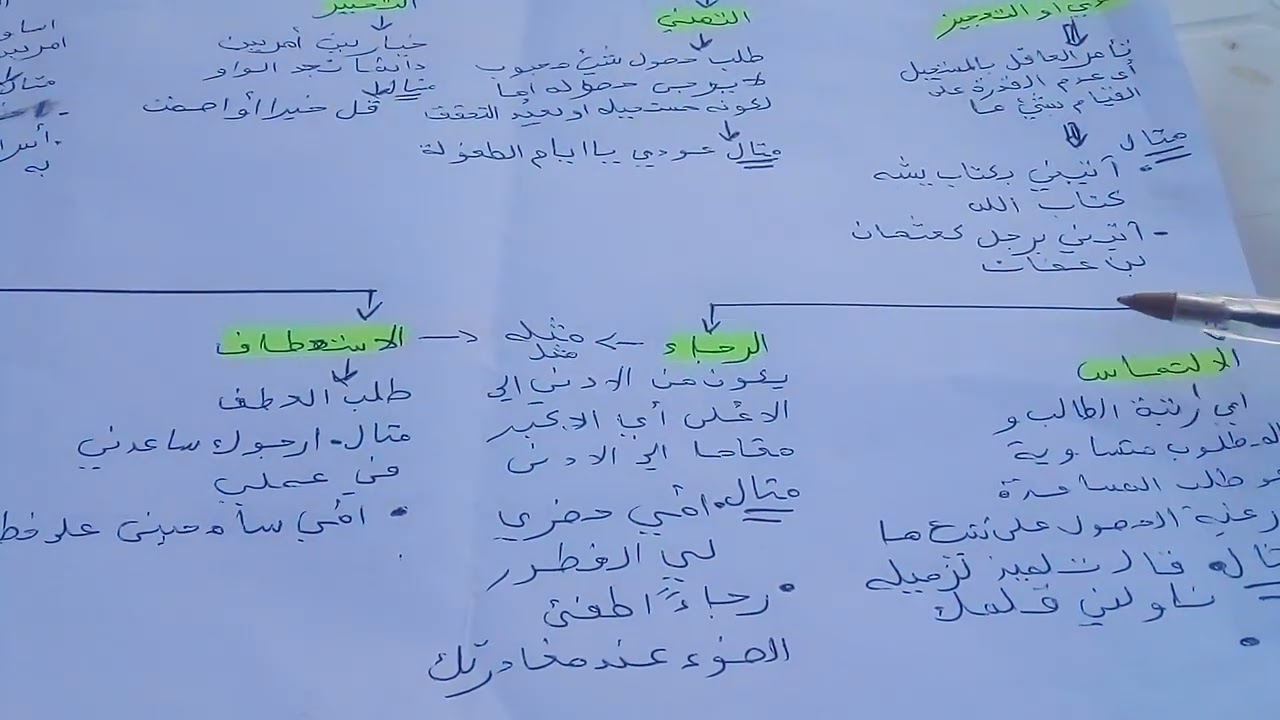 أو التعجيز
تأمر العاقل بالمستحيل
أو عدم القدرة على
القيام بشيء ما
مثال
• آتيني بكتاب يشبه
كتاب الله
- آتيني برجل كعثمان
بن عفان
التمني
طلب حصول شيء محبوب
لا يرجى حصوله إما
لكونه مستحيلا أو بعيد التحقق
مثال عودي يا أيام الطفولة
التخيير
خيار بين أمرين
دائما نجد الواو
مثال قل خيرا أو اصمت
امرين
مثال
به
الالتماس
اي رتبة الطالب و
المطلوب متساوية
هو طلب المساعدة
رغبة الحصول على شيء ما
مثال قالت لميذ لزميله
ناولني قلمك
الرجاء
يكون من الادنى الى
الاعلى أي الاكبر
مقاما الى الادنى
مثال امي حضري
لي الفطور
• رجاءً اطفئ
الضوء عند مغادرتك
مثله
مثل
الاستعطاف
طلب العطف
مثال - ارجوك ساعدني
في عملي
• امي سامحيني على